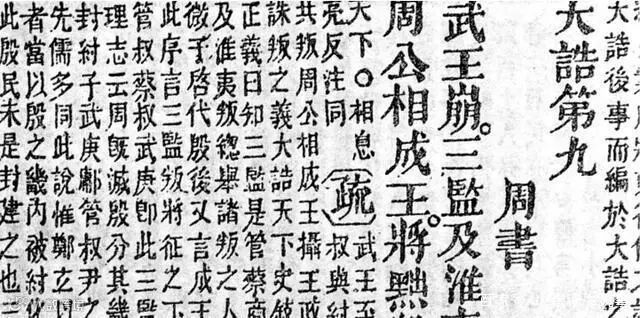 大誥後事而編於大誥之
大誥第九
周書
武王崩。三監及淮
周公相成王。將黜
天下〇相息
亮反注同
疏
武王至
叔與紂
共叛周公相成王攝王政
誅叛之義大誥天下史敘
正義曰知三監是管蔡商
及淮夷叛總舉諸叛之人
微子啓代殷後又言成王
此序言三監叛將征之下
管叔蔡叔武庚卽此三監
理志云周旣滅殷分其畿
封紂子武庚鄘管叔尹之
先儒多同此說惟鄭玄以
者當以殷之畿內被紂化
此殷民未是封建之也